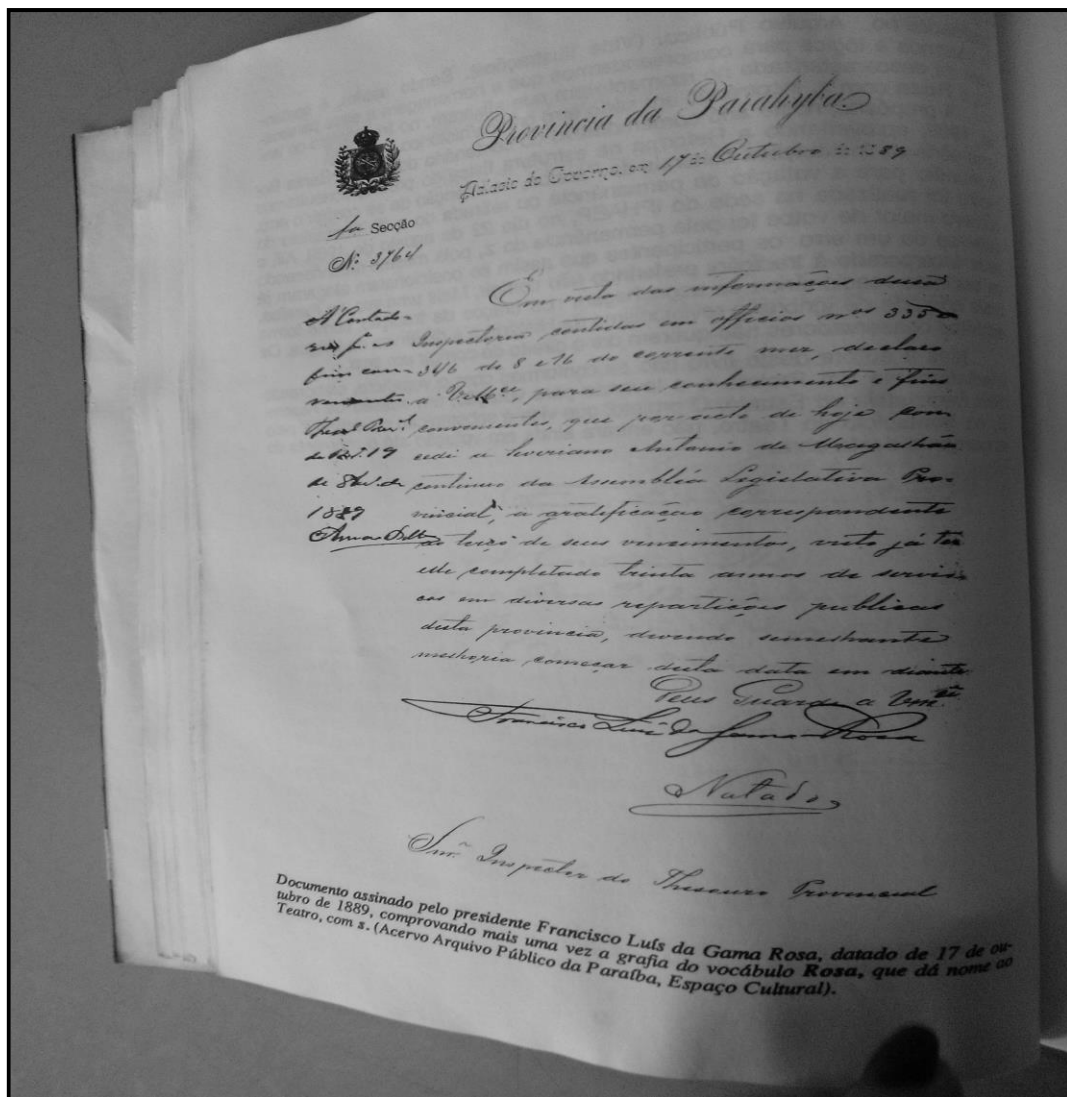 Provincia da Parahyba
Palacio do Governo, em 17 de Outubro de 1889
1a Secção
Nº 3764
Em vista das informações dessa
Inspectoria contidas em officios nos 335 e
346 de 8 e 16 do corrente mez, declaro
a Vmce, para seu conhecimento e fins
convenientes, que por acto de hoje con
cedi a Antonio de Magalhães
continuo da Assembléa Legislativa Pro-
vincial, a gratificação correspondente
ao terço de seus vencimentos, visto já ter
elle completado trinta annos de servi
cos em diversas repartições publicas
desta provincia, devendo semelhante
melhoria começar desta data em diante
Deus Guarde a Vmce
Francisco Luis da Gama Rosa
A Contado-
ria pa os
fins con-
venientes.
Thesro Provl
de 19
de de
1889
Notado
Snr. Inspector do Thesouro Provincial
Documento assinado pelo presidente Francisco Luís da Gama Rosa, datado de 17 de ou-
tubro de 1889, comprovando mais uma vez a grafia do vocábulo Rosa, que dá nome ao
Teatro, com s. (Acervo Arquivo Público da Paraíba, Espaço Cultural).